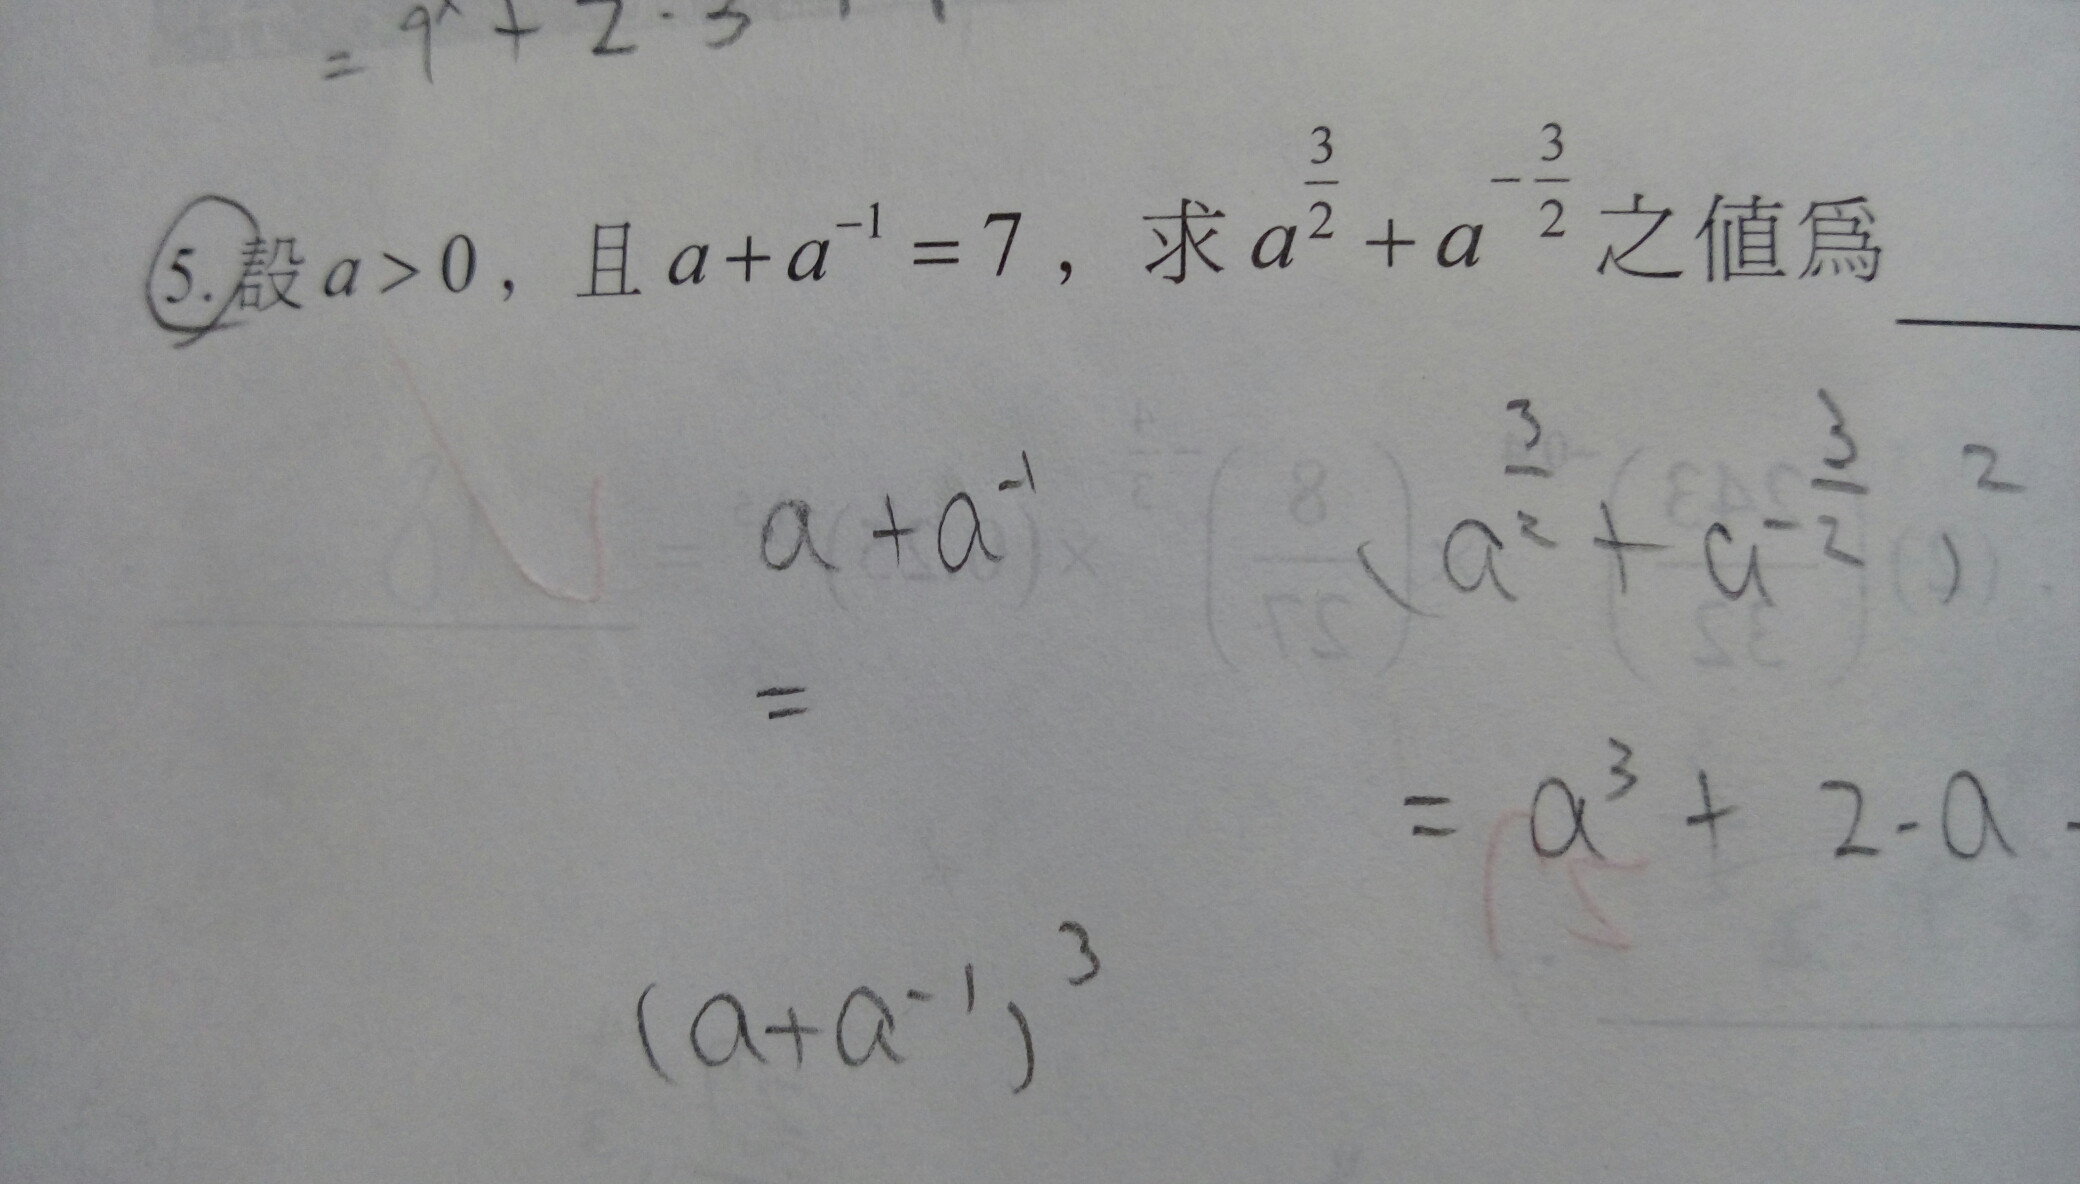 = 9^x + 2 · 3
5. 設 a > 0 ， 且 a + a^{-1} = 7 ， 求 a^{\frac{3}{2}} + a^{-\frac{3}{2}} 之值為 ____
a + a^{-1}
(a^{\frac{3}{2}} + a^{-\frac{3}{2}})^2
=
= a^3 + 2 · a
(a + a^{-1})^3